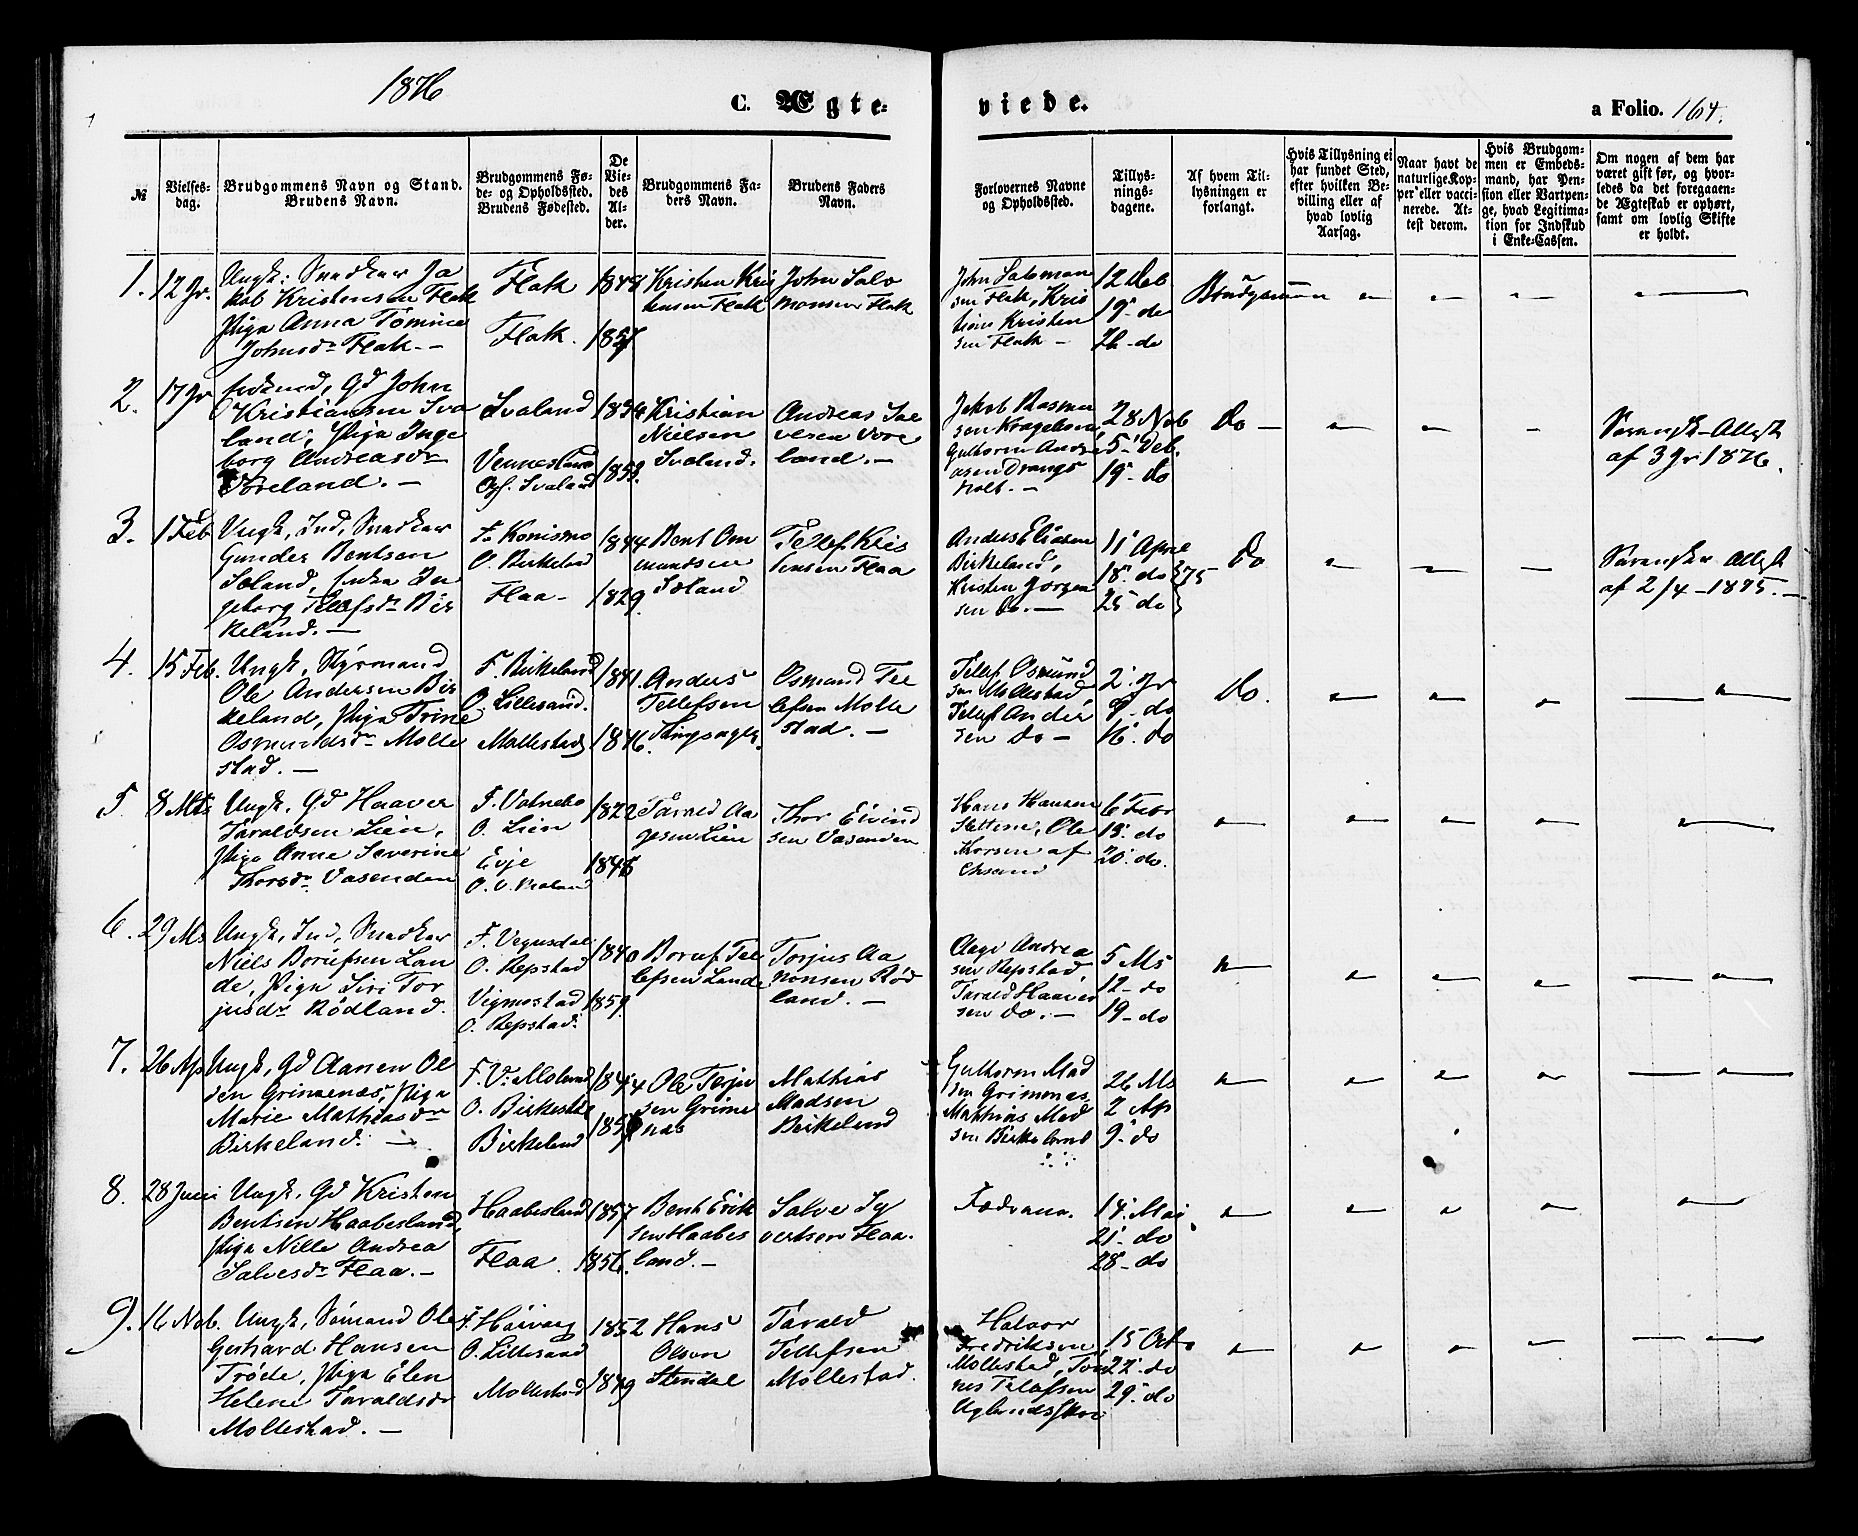 1876
C. Ægte-
viede.
a Folio. 164.
№
Vielses-
dag.
Brudgommens Navn og Stand.
Brudens Navn.
Brudgommens Fø-
de- og Opholdssted.
Brudens Fødested.
De
Vie-
des
Al-
der.
Brudgommens Fa-
ders Navn.
Brudens Faders
Navn.
Forlovernes Navne
og Opholdssted.
Tillys-
nings-
dagene.
Af hvem Til-
lysningen er
forlangt.
Hvis Tillysning ei
har fundet Sted,
efter hvilken Be-
villing eller af
hvad lovlig
Aarsag.
Naar havt de
naturlige Kop-
per eller vacci-
nerede. At-
test derom.
Hvis Brudgom-
men er Embeds-
mand, har Pen-
sion eller Vartpen-
ge, hvad Legitima-
tion for Indskud
i Enke-Cassen.
Om nogen af dem har
været gift før, og hvor-
ledes da det foregaaen-
de Ægteskab er ophørt,
samt om lovlig Skifte
er holdt.
1. 12 Jr.
Ungk: Snedker Ja
kob Kristensen Flak
Pige Anna Tomine
Johnsdr Flak. -
Flak
Flak.
1848
1857
Kristen Kri
stensen Flak
John Salo
monsen Flak
John Salomon
sen Flak, Kris
tian Kristen
sen Flak -
12 Deb
19 - do
26 - do
Brudgommen
2. 17 Jr
Enkemd, Gd John
Kristiansen Sva
land, Pige Inge
borg Andreasdr
Voreland. -
Svaland
Venneslands
Oph. Svaland
1834
1853
Kristian
Nielsen
Svaland.
Andreas Sal
vesen Vore
land. -
Jakob Rasmu
sen
Guttorm André
asen Drangs
holt. -
28 Nob
5 Deb.
19 do
Do -
Sorensk. Attest
af 3 Jr 1876.
3. 1 Feb
Ungk, Ind, Snedker
Gunder Bentsen
Sæland, Enke In
geborg Tellefsdr Bir
keland. -
F. Konismo
O. Birkeland
Flaa -
1844
1829
Bent Om
mundsen
Sæland
Tellef Kris
tensen Flaa
Anders Eliasen
Birkeland,
Kristen Jørgen
sen do. -
11 April
18 do } 75
25 do
Do
Sorensk. Attest
af 2/4 - 1875. -
4. 15 Feb.
Ungk, Styrmand
Ole Andersen Bir
keland, Pige Trine
Osmundsdr Molle
stad. -
F. Birkeland
O. Lillesand.
Mollestad
1841.
1846.
Anders
Tellefsen
Tingsager.
Osmund Tel
lefsen Molle
stad. -
Tellef Osmund
sen Mollestad
Tellef Ander
sen do -
2 Jr
9 - do
16 do
Do.
5 8 Mts
Ungk. Gd Haaver
Taraldsen Lien,
Pige Anne Severine
Thorsdr Vasenden
F. Vatnebo
O. Lien
Evje
O. V. Moland
1822
1848
Tarald Aa
gesen Lien
Thor Eivind
sen Vasenden
Hans Hansen
Ole
Thorsen af
Chrsand
6 Febr
13 do
20 do.
6. 29 Ms
Ungk, Ind, Snedker
Niels Boruefsen Lan
de, Pige Siri Tor
jusdr Rødland.
F. Vegusdal
O. Repstad
Vigmostad
O. Repstad.
1840
1859
Boruf Tel
lefsen Lande
Torjus Aa
nonsen Rød
land. -
Aage Andrea
sen Repstad,
Tarald Haaver
sen do. -
5 Ms
12 - do
19 - do
7. 26 Ap
Ungk, Gd Aanen Ol
sen Grimenæs, Pige
Marie Mathiasdr
Birkeland. -
F. V. Moland
O. Birkeland
Birkeland
1844
1857
Ole Terju
sen Grime
næs
Mathias
Madsen
Birkeland
Guttorm Mad
sen Grimenæs,
Mathias Mad
sen Birkeland
26 Ms
2 Ap
9 - do
8. 28 Juni
Ungk, Gd Kristen
Bentsen Haabesland,
Pige Nille Andrea
Salvesdr Flaa. -
Haabesland
Flaa
1857
1856.
Bent Erik
sen Haabes
land. -
Salve Sy
vertsen Flaa.
Fædrene.
14 Mai
21 do
28 - do
9. 16 Nob.
Ungk, Sømand Ole
Gerhard Hansen
Trøde, Pige Elen
Helene Taraldsdr
Mollestad. -
F. Høivaag
O. Lillesand
Mollestad
1852
1849
Hans
Olsen
Stendal
Tarald
Tellefsen
Mollestad.
Halvor
Fredriksen
Mollestad, Tøn
nes Tellefsen
15 Octo
22 do
29 - do